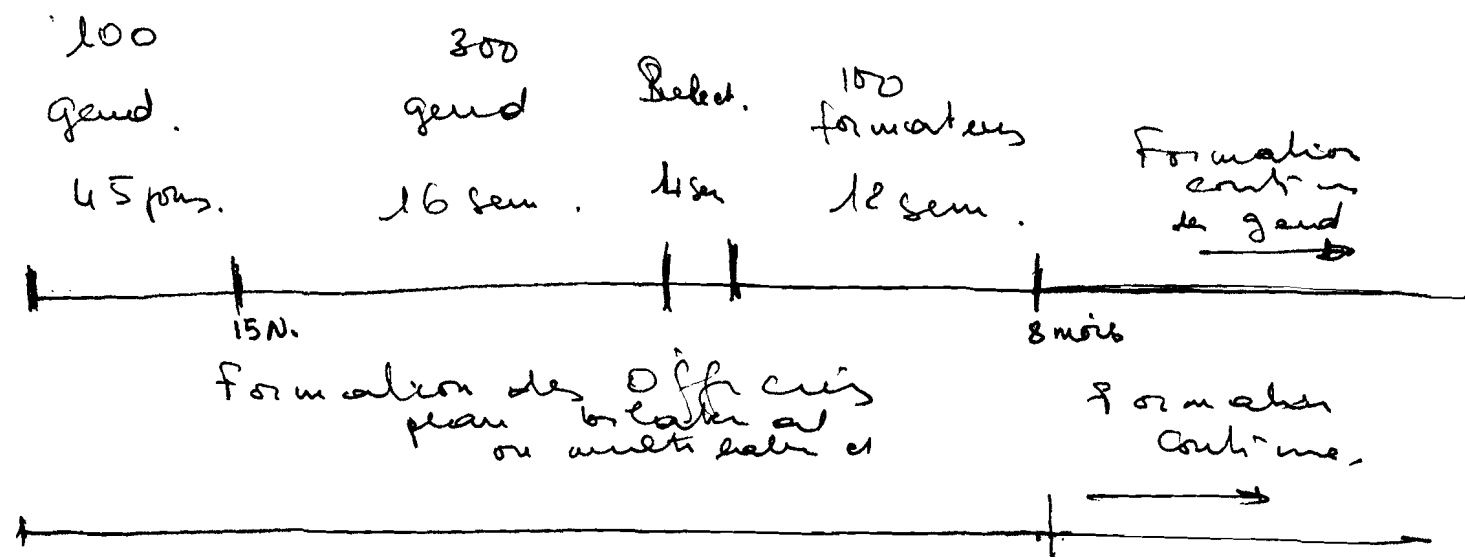 100
gend.
45 jours.
300
gend
16 sem.
Select.
4 sem
100
formateurs
12 sem.
Formation
continue
des gend
15 N.
8 mois
Formation des Officiers
plan bilateral
ou multilateral
Formation
continue.